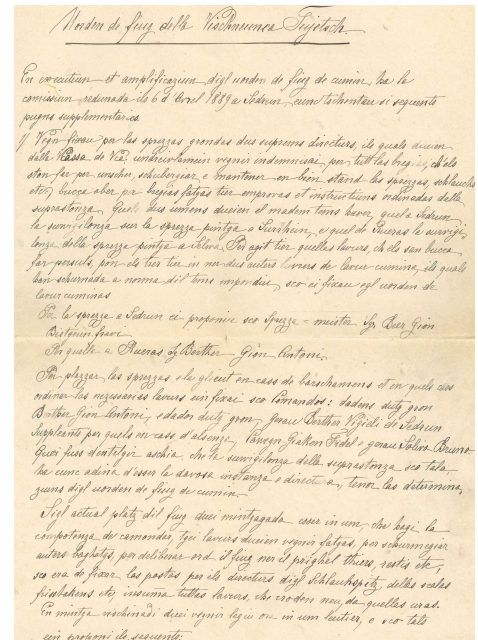 Uorden de fiug della Vischneunca Tujetsch.
En execuziun et amplificaziun digl uorden de fiug de cumin, ha la
comissiun, radunada ils 6 d' Avrel 1889 a Sedrun, cun tschentau si seguents
pugns supplementaris
1) Vegn fixau per las sprezzas grondas dus suprems directurs, ils quals duein
dalla Cassa de Via, undreivlamein vegnir indemnisai per tuttas bregias, ch'els
ston far per unscher, schubergiar e mantener en bien stand las sprezzas, schlauchs
etc, bucca aber per bregias fatgas tier emprovas et instructiuns ordinadas della
suprastonza. Quels dus umens duein el madem tems haver, quel a Sedrun
la survigilonza sur la sprezza pintga a Surrhein, e quel de Rueras la survigi-
lonza della sprezza pintga a Selva. Per agid tier quellas lavurs, ch'els san bucca
far persuls, pon els trer tier in ner dus auters luvrers de lavur cumina, ils quals
han schurnada a norma dil tems impondiu, sco ei fixau egl uorden de
lavur cuminas
Per la sprezza a Sedrun ei proponiu sco Sprezza-meister Sgr. Beer Gion
Battesta
Per quella a Rueras Sgr Berther Gion Antoni.
Per plazzar las sprezzas, e la glieut en cass de barschament et en quels cass
ordinar las necessarias lavurs ein fixai sco Comandos: dadens dutg gron
Berther Gion Antoni, e dador dutg gron, gerau Berther Vigeli de Sedrun
Suppleants per quels en cass d'absenza, Cavegn Giachen Fidel e gerau Soliva Bruno
Quei fuss d'entelgir aschia, che la survigilonza della suprastonza sco tala,
ha cunc adina d'esser la davosa instanza e directura, tenor las determina-
ziuns digl uorden de fiug de cumin.
Sigl actual platz dil fiug duei mintgagada esser in um, che hagi la
competenza de camondar, tgei lavurs duein vegnir fatgas, per schurmegiar
auters baghetgs, per deliberar ord il fiug ner el prighel thiers, restis etc,
sco era de fixar las postas per ils directurs digl Schlauchspetz, dellas scalas
frisbahens etc, insuma tuttas lavurs, che croden neu da quellas uras.
En mintga vischinadi duei vegnir legiu ora in um lautier, e sco tals
ein proponi ils seguents: